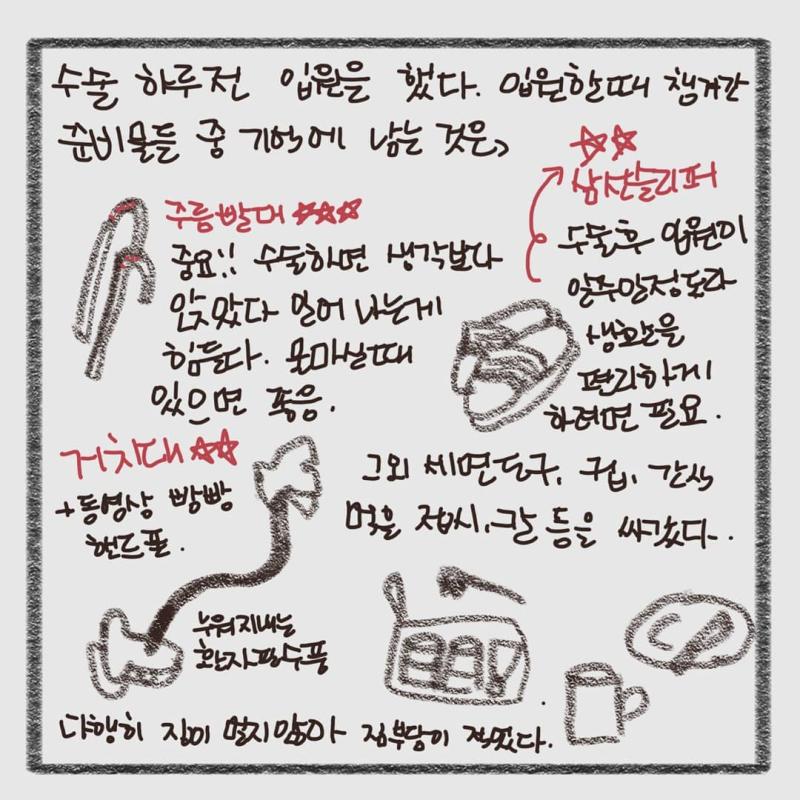 수술 하루전 입원을 했다. 입원할때 챙겨간
준비물들 중 기억에 남는 것은,
주름빨대 ☆☆☆
중요!! 수술하면 생각보다
앉았다 일어 나는게
힘들다. 물마실때
있으면 좋음.
☆☆
삼선슬리퍼
수술후 입원이
일주일정도라
생활을
편리하게
하려면 필요.
거치대 ☆☆
+동영상 빵빵
핸드폰.
누워지내는
환자필수품
그외 세면도구, 컵, 간식
먹을 접시, 칼 등을 싸갔다.
다행히 집이 멀지않아 짐부담이 적었다.